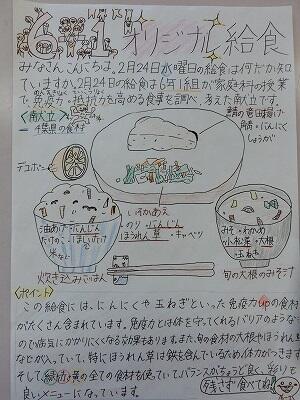 6-1 オリジナル給食
みなさんこんにちは。2月24日水曜日の給食は何だか知
っていますか。2月24日の給食は6年1組が家庭科の授業
で、免疫力・抵抗力を高める食事を調べ、考えた献立です。
<献立>
千葉県の食材
鯖の竜田揚げ
にんにく
しょうが
デコポン
いそかあえ
のり・にんじん
ほうれん草・キャベツ
油あげ・にんじん
たけのこ・ほしいたけ
米など
みそ・わかめ
小松菜・大根
玉ねぎ
炊き込みごはん
旬の大根のみそ汁
<ポイント>
この給食には、にんにくや玉ねぎといった免疫力upの食材
がたくさん含まれています。免疫力とは体を守ってくれるバリアのような
ので病気にかかりにくくなる効果もあります。また、旬の食材の大根やほうれん草
などが入っていて、特にほうれん草は鉄を含んでいるため体力がつきます
そして、緑・赤・黄の全ての食材を使っていてバランスがちょうど良く、彩りも
良いメニューになっています。
残さず食べてね!